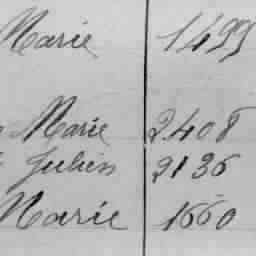 Marie 1499
Marie 2408
Julien 2136
Marie 1660